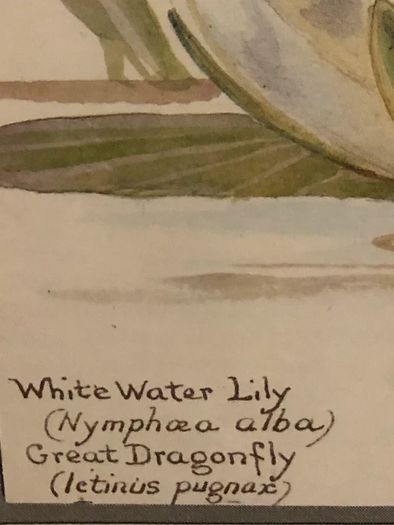 White Water Lily
(Nymphæa alba)
Great Dragonfly
(Ictinus pugnax)